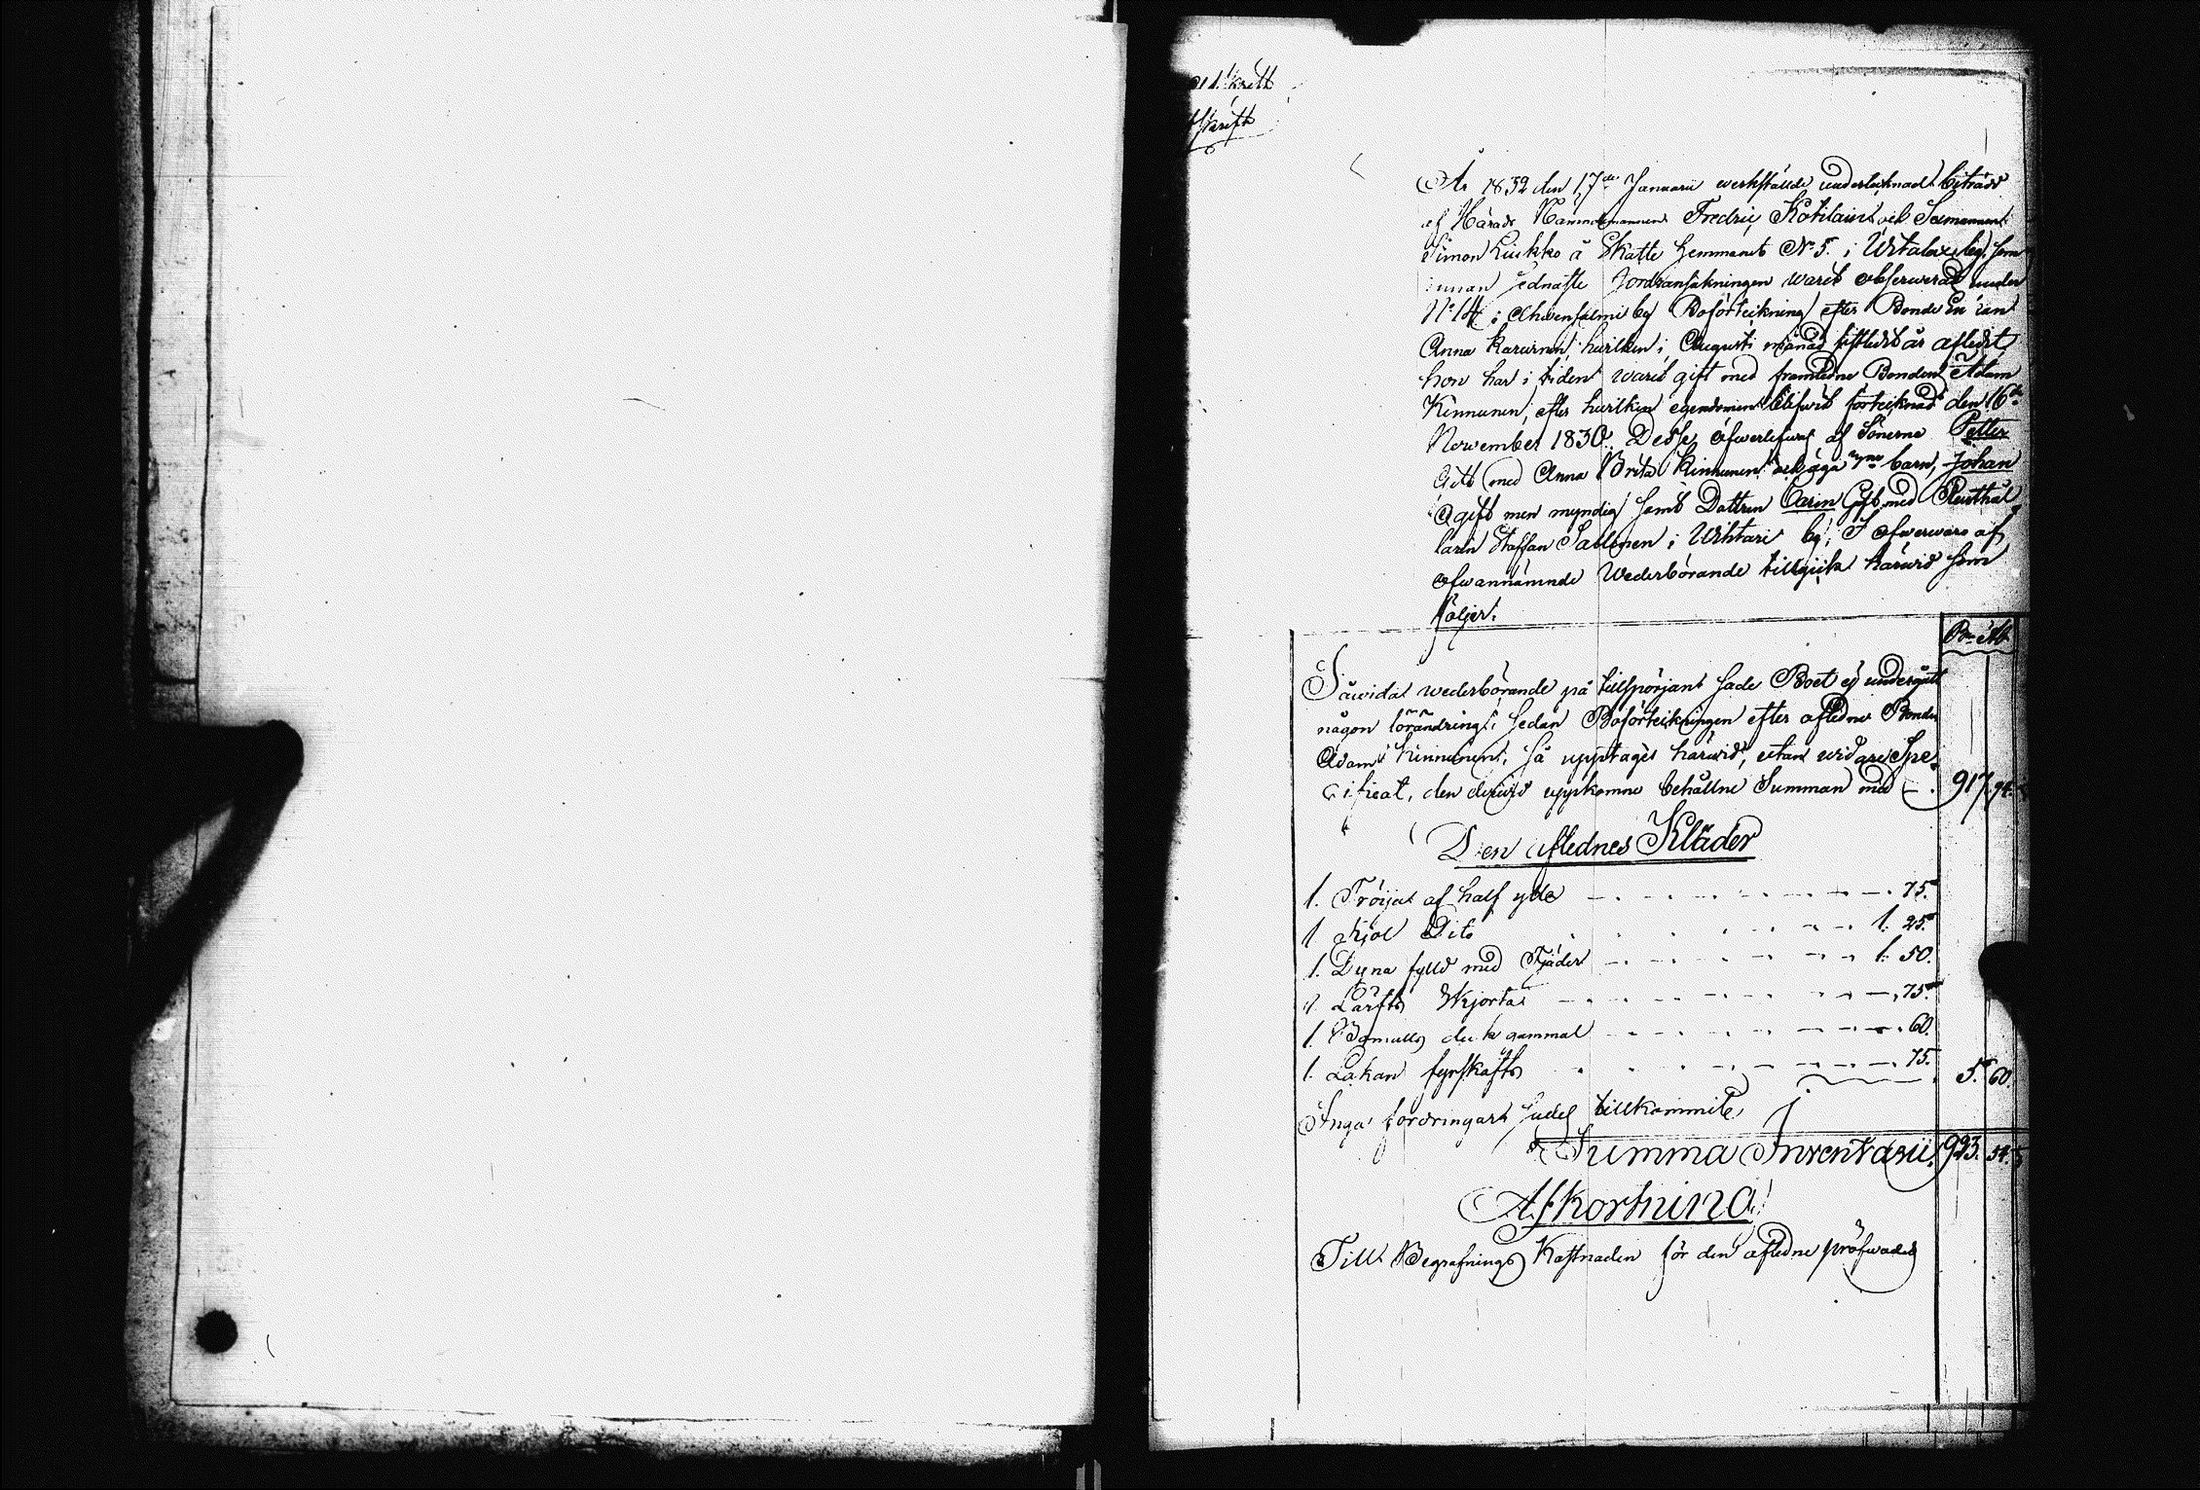 År 1832 den 17de Januarii werkstälde undertecknad biträdd
af Härads Nämndemannen Fredric Kotilain och Sexmannen
Simon Liukko å Skatte Hemmanet No 5. i Wirtalax by, som
innan sednaste Jordransakningen warit observerad under
No 14 i Ahvensalmi by Boförteckning efter Bonde Enkan
Anna Karunen, hwilken i Augusti månad sistledit år afledit,
hon har i tiden warit gift med framledne Bonden Adam
Kinnunen, efter hwilken egendomen blifwit förtecknad den 16de
November 1830. Desse öfwerlefwas af Sönerne Petter
Gift med Anna Brita Kinnunen och äga barn, Johan
Ogift men myndig samt Dottren Carin Gift med Rusthål
laren Staffan Sallinen i Wihtari by; I öfwerwaro af
ofwannämnde Wederbörande tillgick härwid som
följer.
Ro Sil
Såwida wederbörande på tillspörjan sade Boet ej undergått
någon förändring, sedan Boförteckningen efter afledne Bonden
Adam Kinnunen, så upptages härwid, utan widare Spe-
cificat, den derwid uppkomne behållne Summan med 917. 94.
Den aflednes Kläder
1. Tröija af half ylle 75.
1 Kjol Dito 1. 25.
1. Dyna fylld med Fjäder 1. 50.
1 Lärfts Skjorta 75.
1. Bomulls duk gammal 60.
1. Lakan fyrskafts 75. 5. 60.
Inga fordringar sades tillkommit
Summa Inventarii 923. 54.
Afkortning
Till Begrafnings Kostnaden för den afledne pröfwades